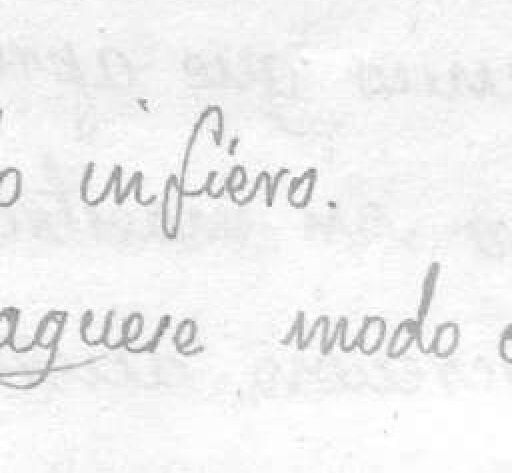 o infiero.
aquese modo